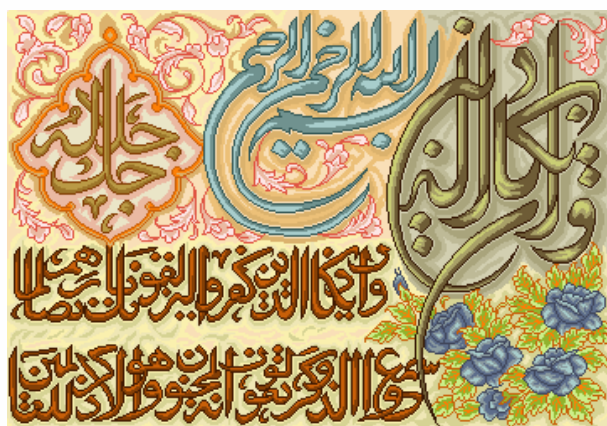 وان يكاد
بسم الله الرحمن الرحيم
جل جلاله
وان يكاد الذين كفروا ليزلقونك بابصارهم لما
سمعوا الذكر ويقولون انه لمجنون وما هو الا ذكر للعالمين